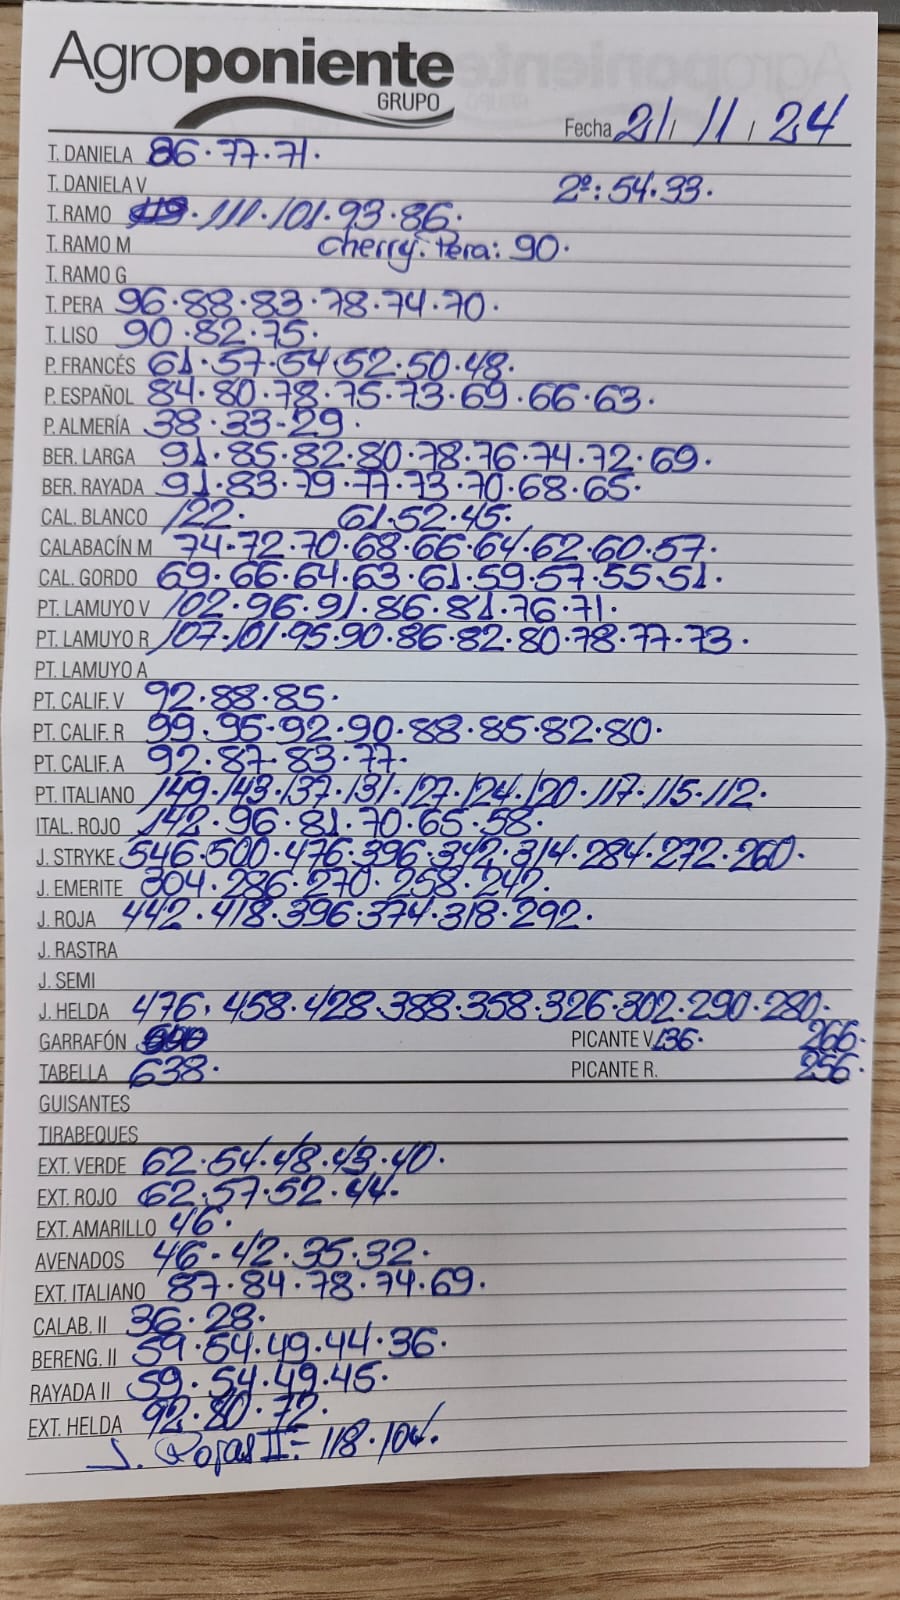 Agroponiente
GRUPO
Fecha 21 / 11 / 24
T. DANIELA 86·77·71·
T. DANIELA V 2ª: 54·33·
T. RAMO ·111·101·93·86·
T. RAMO M cherry. Pera: 90·
T. RAMO G
T. PERA 96·88·83·78·74·70·
T. LISO 90·82·75·
P. FRANCÉS 61·57·54·52·50·48·
P. ESPAÑOL 84·80·78·75·73·69·66·63·
P. ALMERÍA 38·33·29·
BER. LARGA 91·85·82·80·78·76·74·72·69·
BER. RAYADA 91·83·79·77·73·70·68·65·
CAL. BLANCO 122· 61·52·45·
CALABACÍN M 74·72·70·68·66·64·62·60·57·
CAL. GORDO 69·66·64·63·61·59·57·55·51·
PT. LAMUYO V 102·96·91·86·81·76·71·
PT. LAMUYO R 107·101·95·90·86·82·80·78·77·73·
PT. LAMUYO A
PT. CALIF. V 92·88·85·
PT. CALIF. R 99·95·92·90·88·85·82·80·
PT. CALIF. A 92·87·83·77·
PT. ITALIANO 149·143·137·131·127·124·120·117·115·112·
ITAL. ROJO 142·96·81·70·65·58·
J. STRYKE 546·500·476·396·342·314·284·272·260·
J. EMERITE 304·286·270·258·242·
J. ROJA 442·418·396·374·318·292·
J. RASTRA
J. SEMI
J. HELDA 476·458·428·388·358·326·302·290·280·
GARRAFÓN PICANTE V. 136· 266·
TABELLA 638· PICANTE R. 256·
GUISANTES
TIRABEQUES
EXT. VERDE 62·54·48·43·40·
EXT. ROJO 62·57·52·44·
EXT. AMARILLO 46·
AVENADOS 46·42·35·32·
EXT. ITALIANO 87·84·78·74·69·
CALAB. II 36·28·
BERENG. II 59·54·49·44·36·
RAYADA II 59·54·49·45·
EXT. HELDA 92·80·72·
J. Rojas II= 118·104·